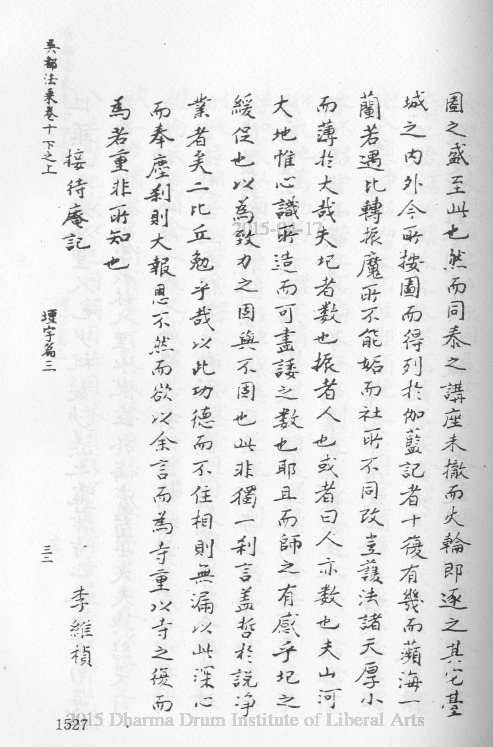 固之盛至此也然而同泰之講座未撤而火輪即逐之其它臺
城之內外今所按圖而得列於伽藍記者十復有幾而蘋海一
蘭若遇圮轉振魔所不能妬而社所不同改豈護法諸天厚小
而薄於大哉夫圮者數也振者人也或者曰人亦數也夫山河
大地惟心識所造而可盡諉之數也耶且而師之有感乎圮之
緩促也以為致力之因與不因也此非獨一剎言蓋哲於說淨
業者矣二比丘勉乎哉以此功德而不住相則無漏以此深心
而奉塵剎則大報恩不然而欲以余言而為寺重以寺之復而
為若重非所知也
接待庵記
李維楨
吳都法乘卷十下之上
壇宇篇三
三二
1527
2015-04-17
2015 Dharma Drum Institute of Liberal Arts